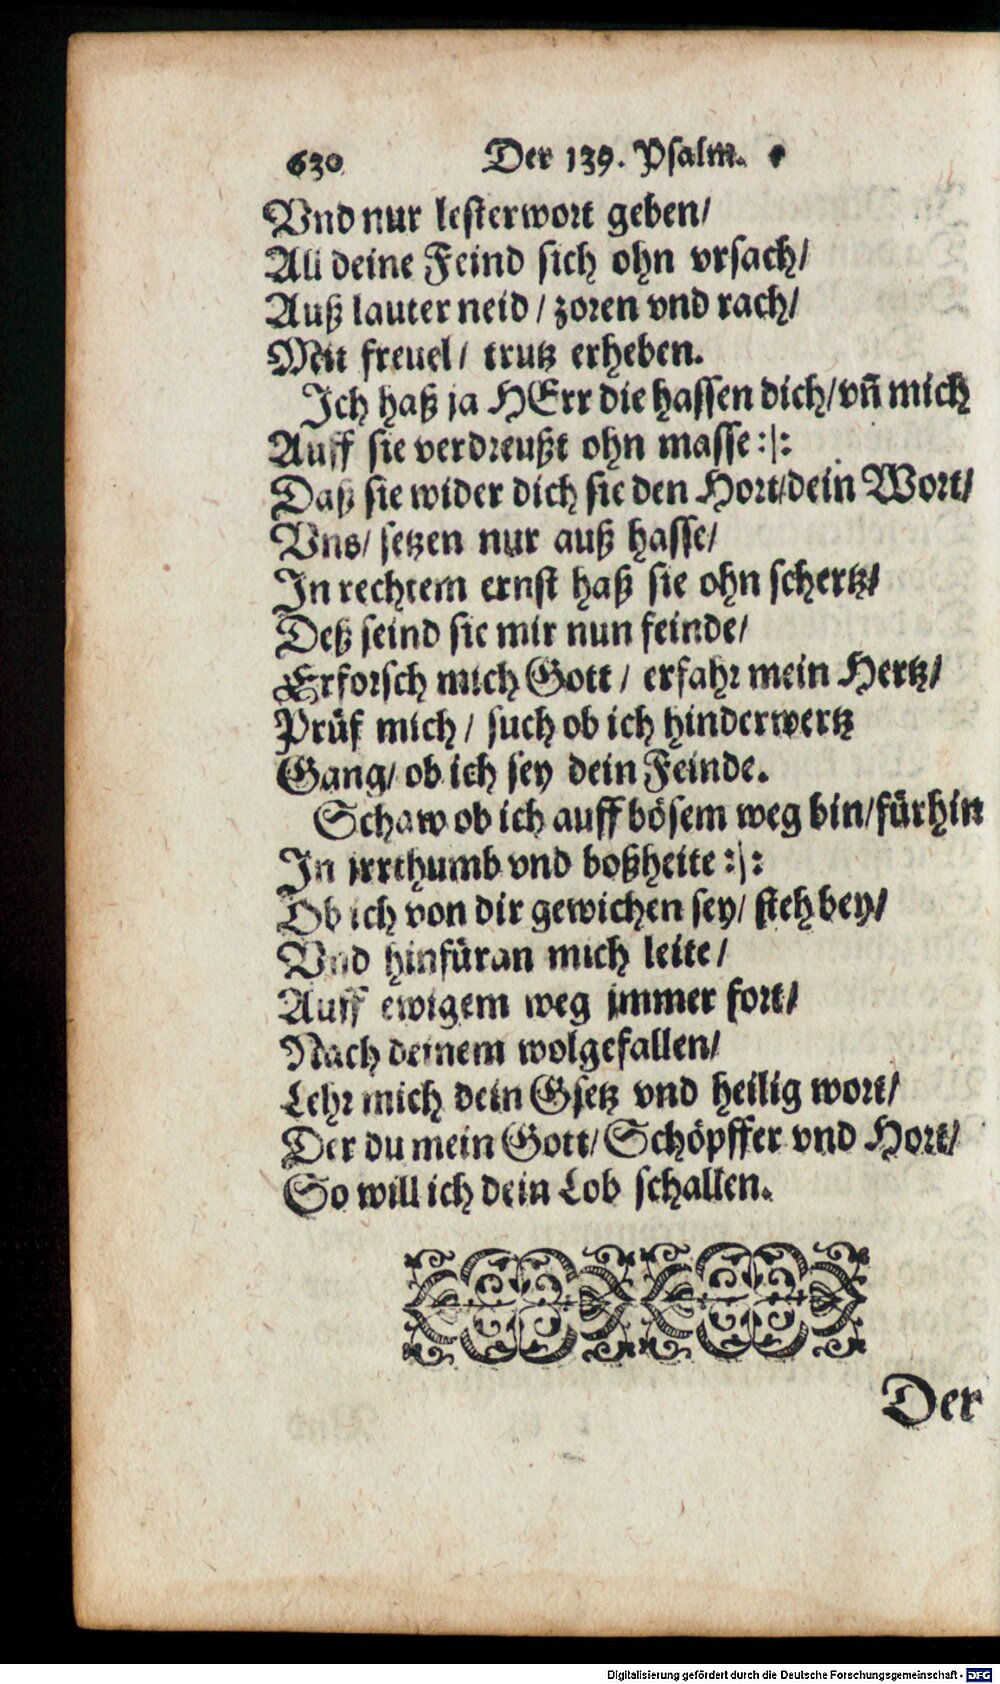 630 Der 139. Psalm.
Vnd nur lesterwort geben/
All deine Feind sich ohn vrsach/
Auß lauter neid / zoren vnd rach/
Mit freuel/ trutz erheben.
Ich haß ja HErr die hassen dich/ vñ mich
Auff sie verdreußt ohn masse :|:
Daß sie wider dich sie den Hort/ dein Wort/
Vns/ setzen nur auß hasse/
In rechtem ernst haß sie ohn schertz/
Deß seind sie mir nun feinde/
Erforsch mich Gott / erfahr mein Hertz/
Prüf mich / such ob ich hinderwertz
Gang/ ob ich sey dein Feinde.
Schaw ob ich auff bösem weg bin/ fürhin
In jrrthumb vnd boßheite :|:
Ob ich von dir gewichen sey/ steh bey/
Vnd hinfüran mich leite /
Auff ewigem weg jmmer fort/
Nach deinem wolgefallen/
Lehr mich dein Gsetz vnd heilig wort/
Der du mein Gott/ Schöpffer vnd Hort/
So will ich dein Lob schallen.
Der
Digitalisierung gefördert durch die Deutsche Forschungsgemeinschaft - DFG